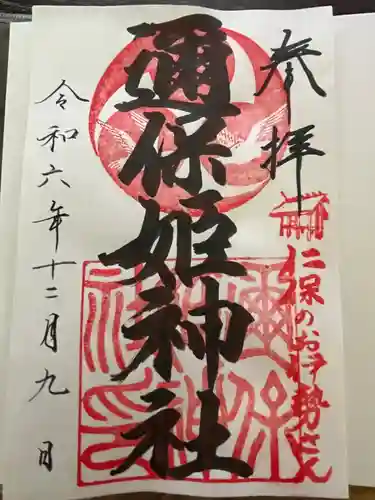 参拝
仁保のお伊勢さん
邇保姫神社
令和六年十二月九日